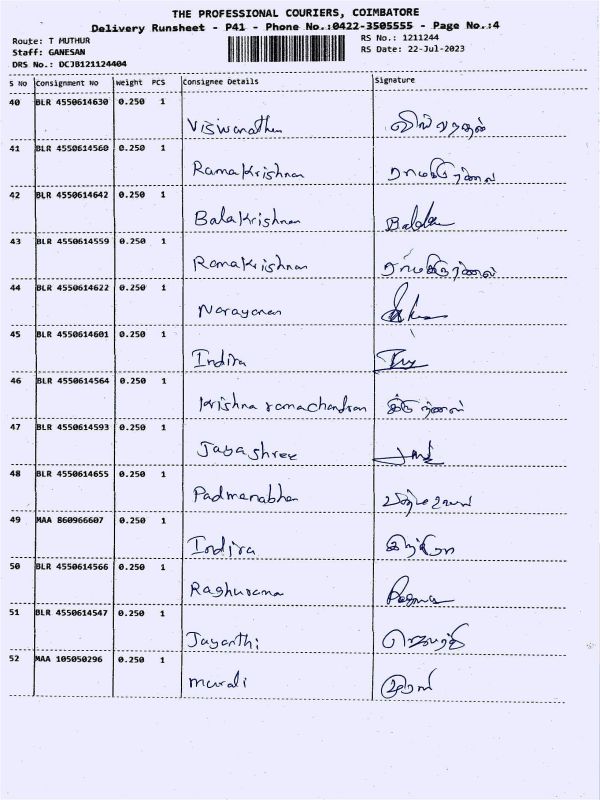 THE PROFESSIONAL COURIERS, COIMBATORE
Delivery Runsheet - P41 - Phone No.:0422-3505555 - Page No.:4
Route: T MUTHUR
RS No.: 1211244
Staff: GANESAN
RS Date: 22-Jul-2023
DRS No.: DCJB121124404
S No Consignment No Weight PCS Consignee Details Signature
40 BLR 4550614630 0.250 1
Viswanathan
41 BLR 4550614560 0.250 1
Ramakrishnan
42 BLR 4550614642 0.250 1
Balakrishnan
43 BLR 4550614559 0.250 1
Ramakrishnan
44 BLR 4550614622 0.250 1
Narayanan
45 BLR 4550614601 0.250 1
Indira
46 BLR 4550614564 0.250 1
Krishna ramachandran
47 BLR 4550614593 0.250 1
Jayashree
48 BLR 4550614655 0.250 1
Padmanabhan
49 MAA 860966607 0.250 1
Indira
50 BLR 4550614566 0.250 1
Raghurama
51 BLR 4550614547 0.250 1
Jayanthi
52 MAA 105050296 0.250 1
murali